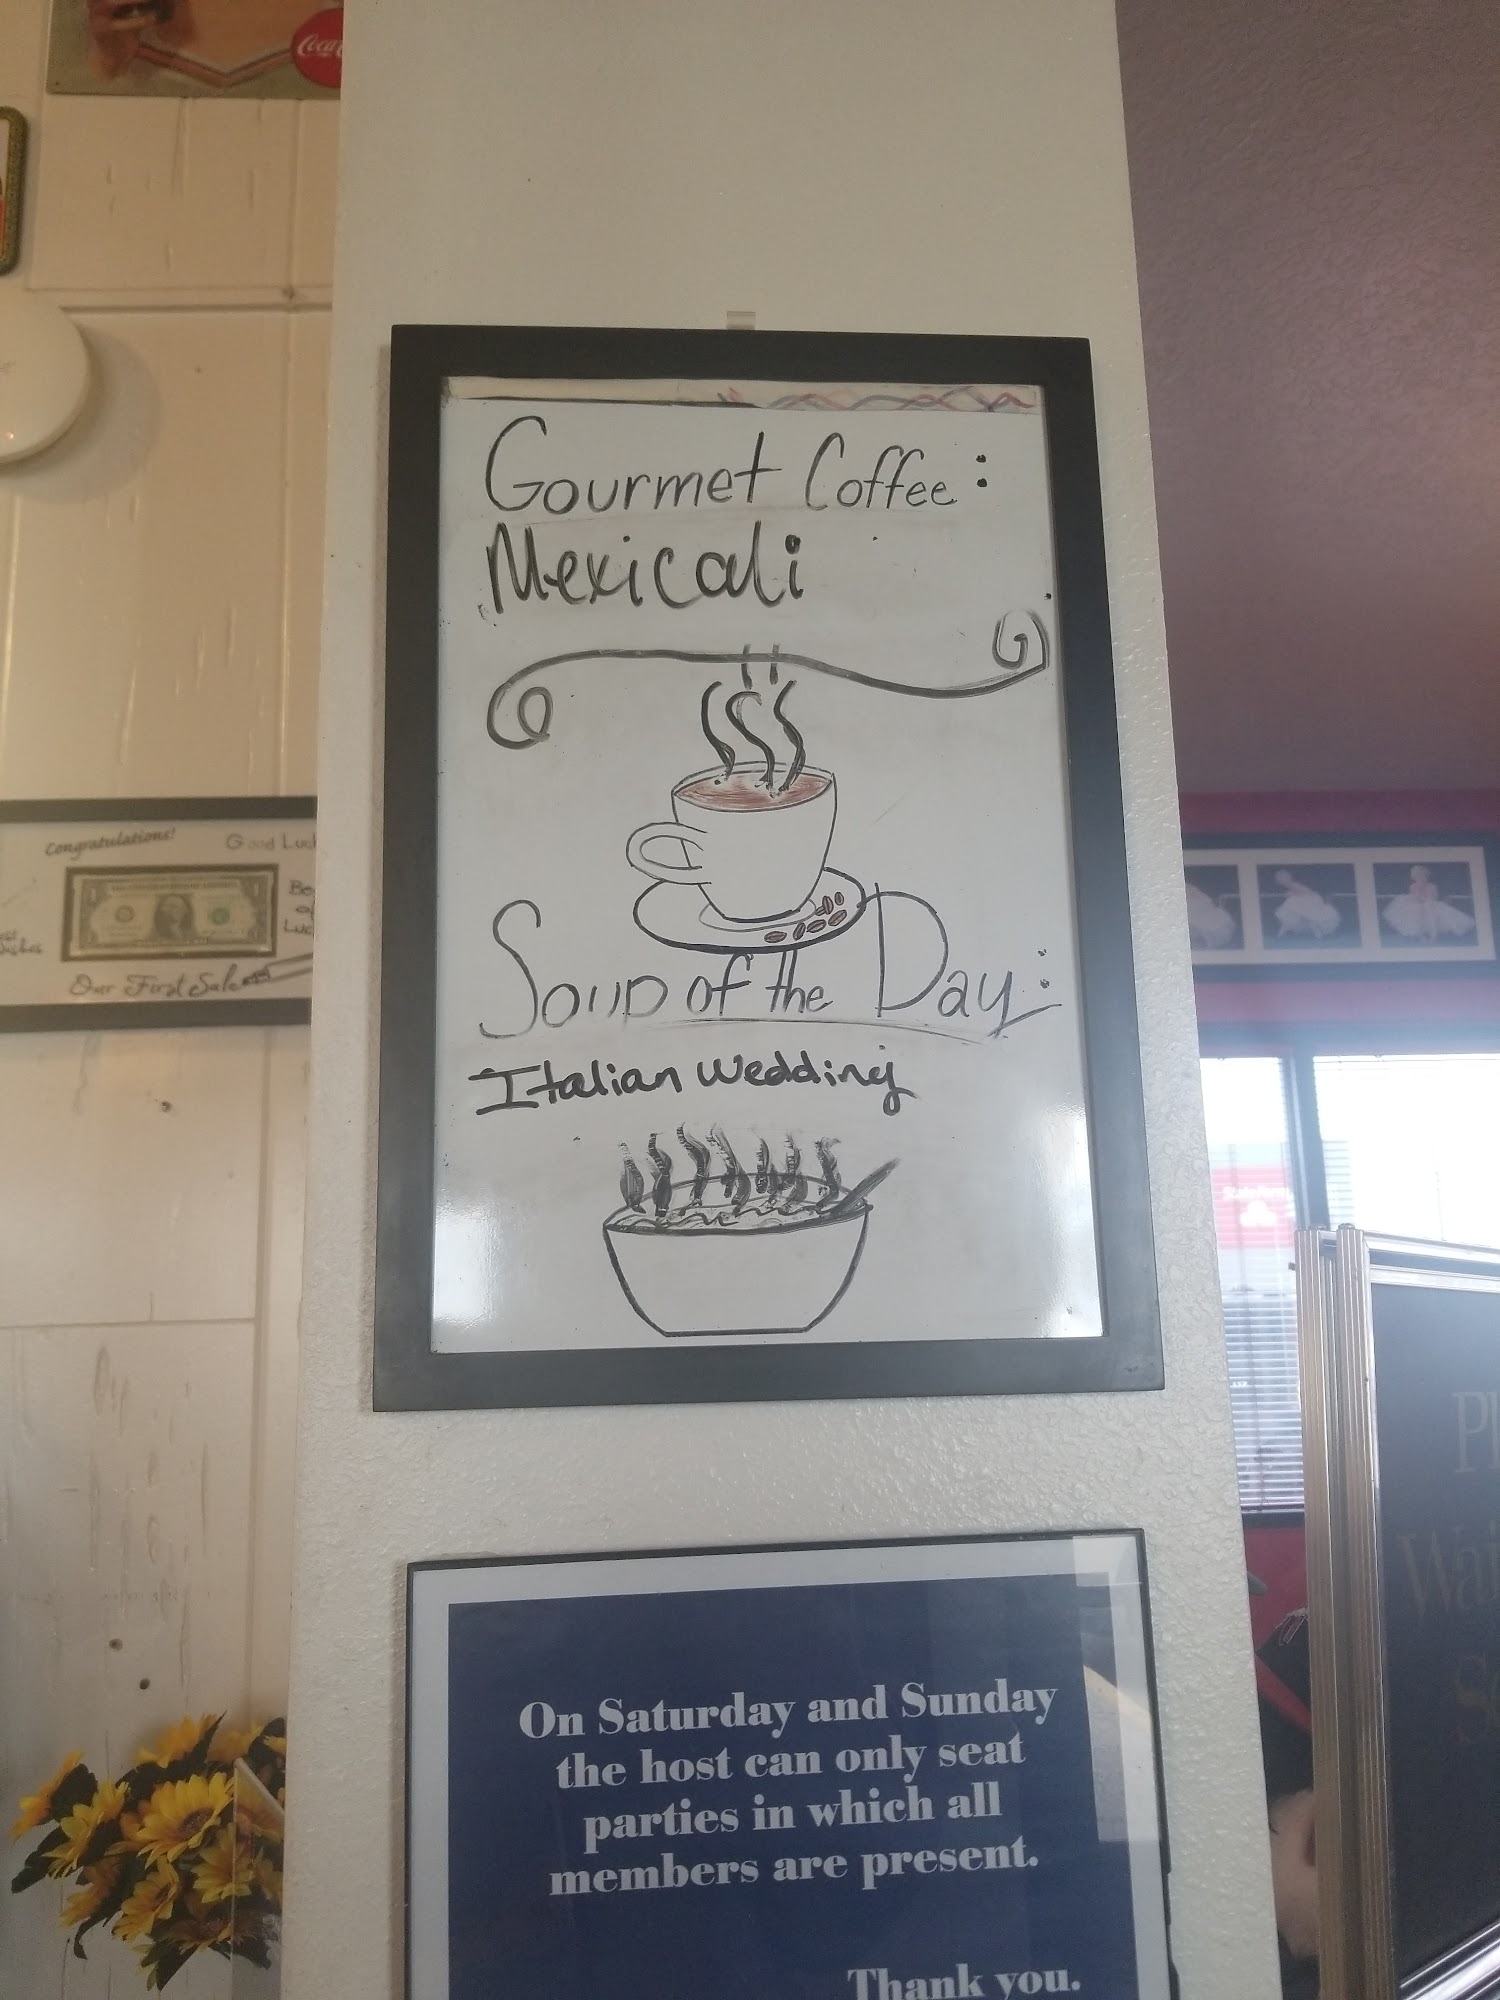 Coca
Congratulations!
Good Luck
Our First Sale
Gourmet Coffee:
Mexicali
Soup of the Day:
Italian Wedding
StateFarm
On Saturday and Sunday
the host can only seat
parties in which all
members are present.
Thank you.